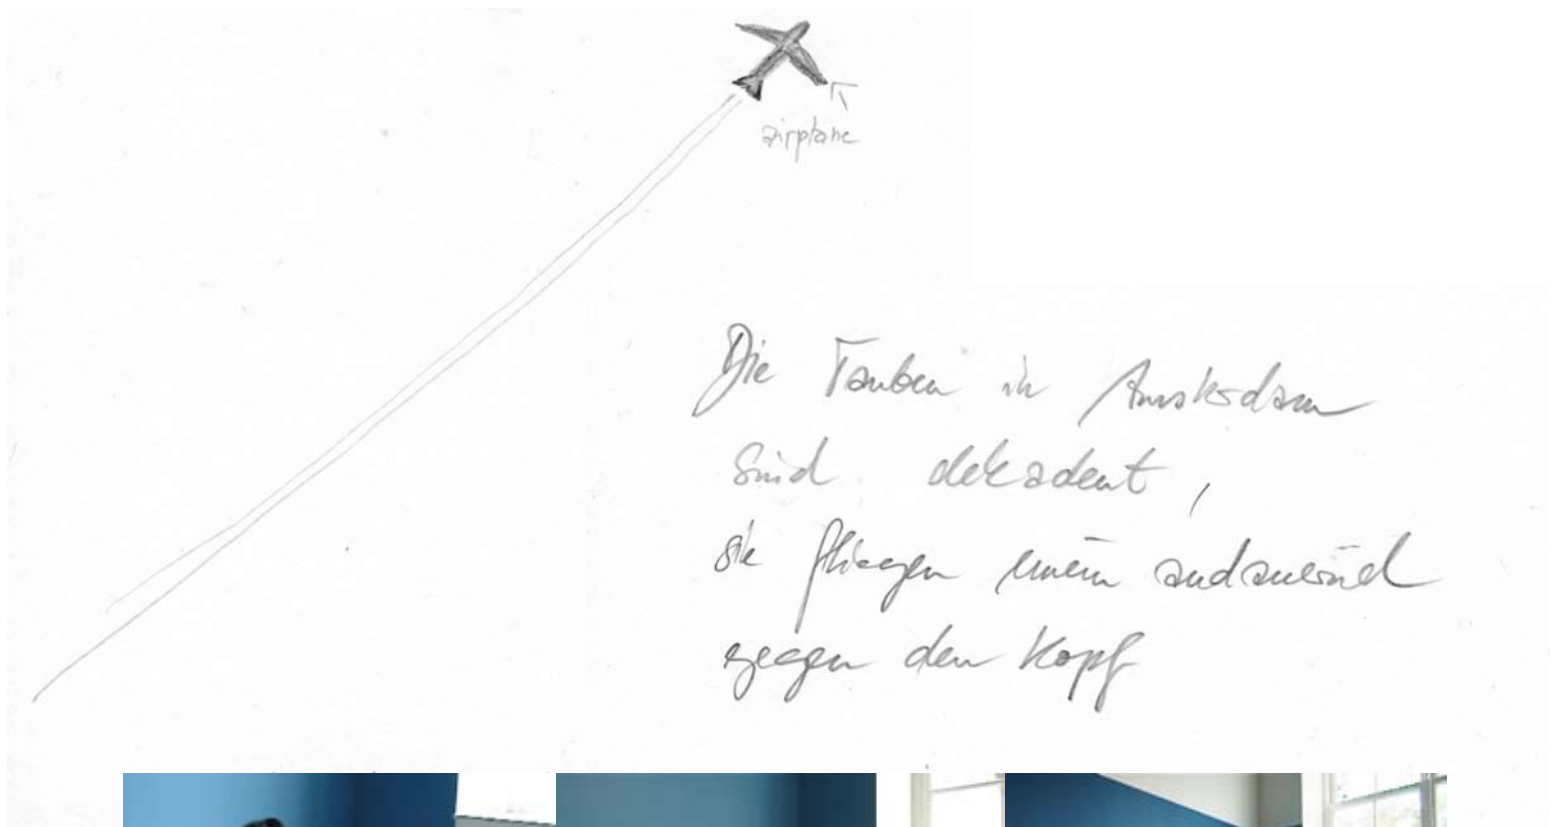 airplane
Die Tauben in Amsterdam
sind dekadent,
sie fliegen einem andauernd
gegen den Kopf